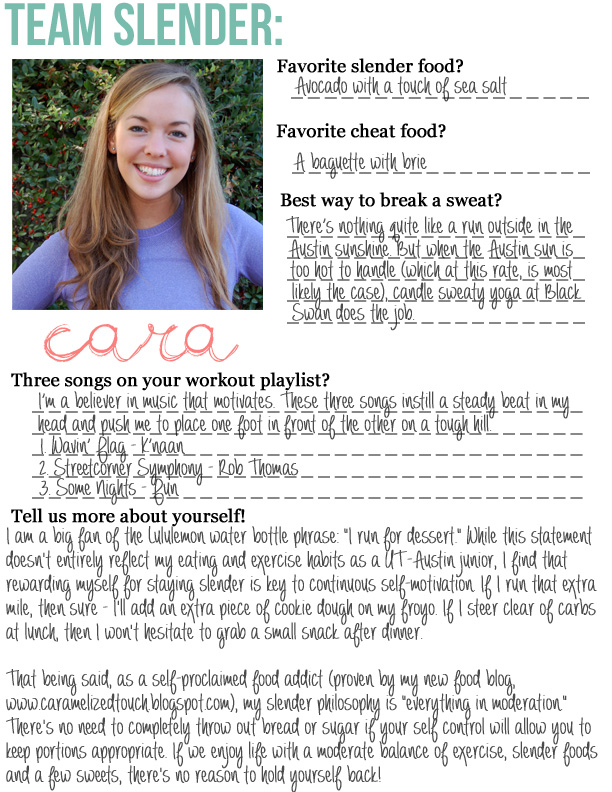 TEAM SLENDER:
Favorite slender food?
Avocado with a touch of sea salt
Favorite cheat food?
A baguette with brie
Best way to break a sweat?
There's nothing quite like a run outside in the
Austin sunshine. But when the Austin sun is
too hot to handle (which at this rate, is most
likely the case), candle sweaty yoga at Black
Swan does the job.
cara
Three songs on your workout playlist?
I'm a believer in music that motivates. These three songs instill a steady beat in my
head and push me to place one foot in front of the other on a tough hill.
1. Wavin' Flag - K'naan
2. Streetcorner Symphony - Rob Thomas
3. Some Nights - Fun
Tell us more about yourself!
I am a big fan of the Lululemon water bottle phrase: "I run for dessert." While this statement
doesn't entirely reflect my eating and exercise habits as a UT-Austin junior, I find that
rewarding myself for staying slender is key to continuous self-motivation. If I run that extra
mile, then sure - I'll add an extra piece of cookie dough on my froyo. If I steer clear of carbs
at lunch, then I won't hesitate to grab a small snack after dinner.
That being said, as a self-proclaimed food addict (proven by my new food blog,
www.caramelizedtouch.blogspot.com), my slender philosophy is "everything in moderation."
There's no need to completely throw out bread or sugar if your self control will allow you to
keep portions appropriate. If we enjoy life with a moderate balance of exercise, slender foods
and a few sweets, there's no reason to hold yourself back!